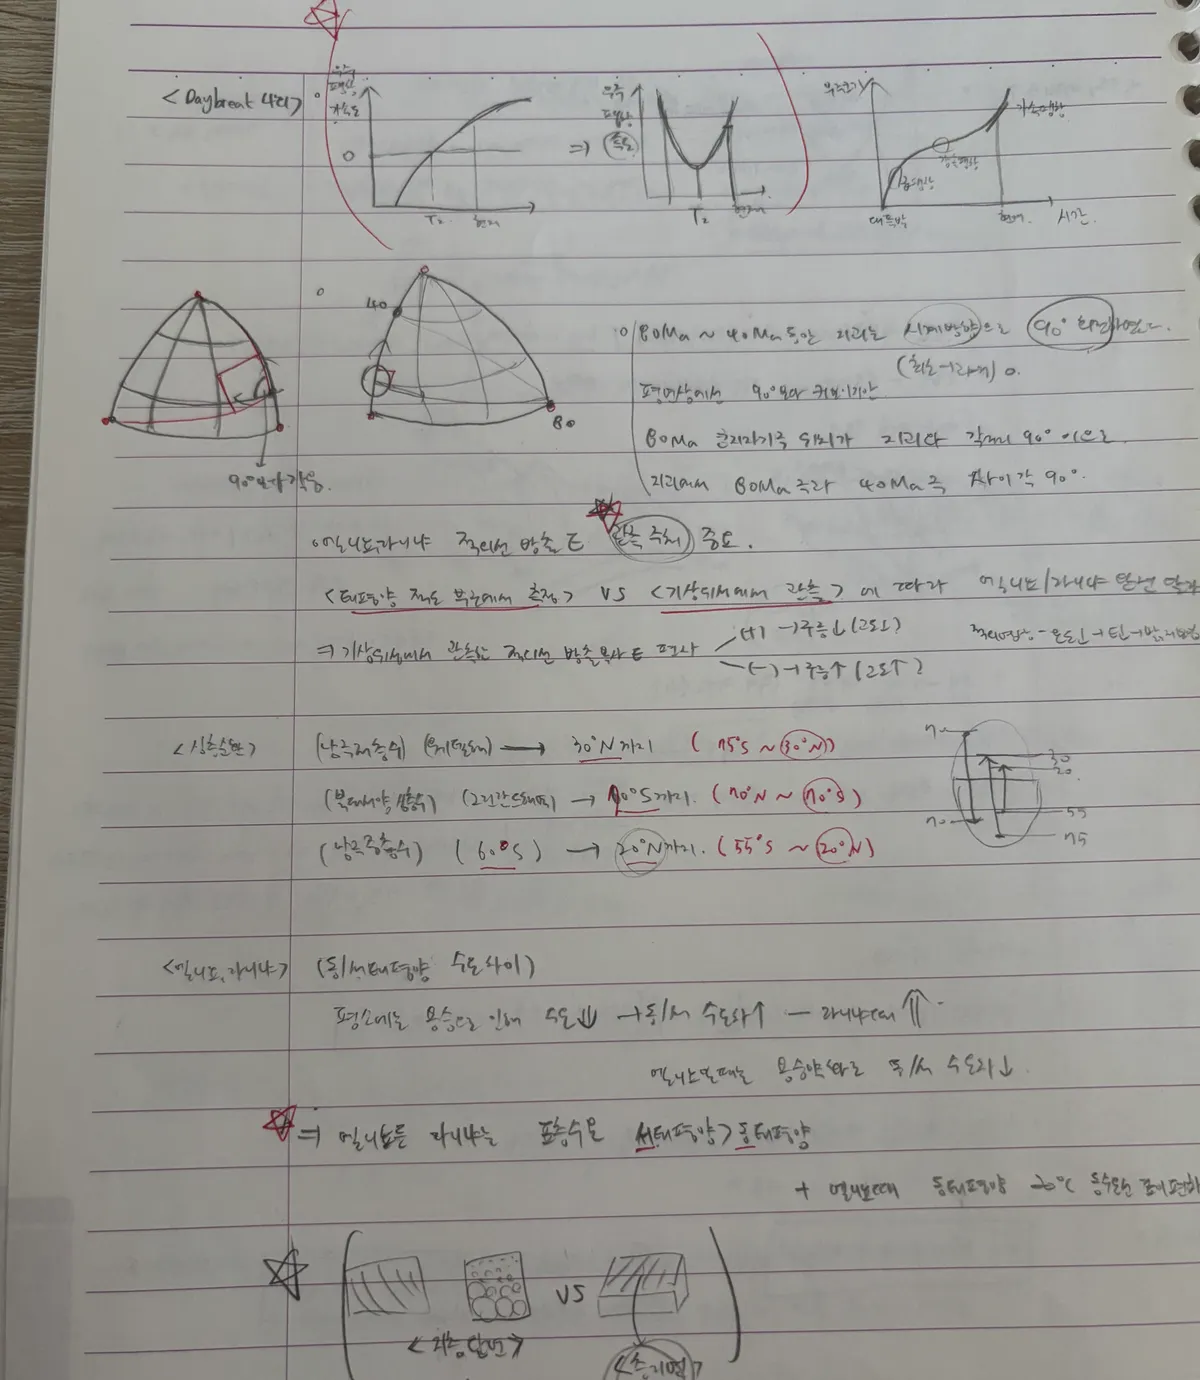 <Daybreak 4회>
우주
팽창
가속도
0
T₂
현재
⇒
우주
팽창
속도
T₂
현재
우주크기
가속팽창
급팽창
대폭발
현재
시간
90°보다 작음.
40
80
○ 80Ma ~ 40Ma 동안 지괴는 시계방향으로 90° 회전하였다.
평면상에서 90°보다 커보이지만
80Ma 고지자기극 위치가 지괴와 각거리 90° 이므로
지괴에서 80Ma 극과 40Ma 극 사이각 90°.
○ 엘니뇨, 라니냐 적외선 방출 E 관측 주체 중요.
<태평양 적도 부근에서 측정> VS <기상위성에서 관측> 에 따라 엘니뇨/라니냐
⇒ 기상위성에서 관측한 적외선 방출복사 E 편차
(+) → 구름↓ (고도↓)
(-) → 구름↑ (고도↑)
<심층순환>
(남극저층수) (웨델해) → 30°N까지 (75°S ~ 30°N)
(북대서양심층수) (그린란드해) → 60°S까지. (70°N ~ 70°S)
(남극중층수) (60°S) → 20°N까지. (55°S ~ 20°N)
70
30
20
55
70
75
<엘니뇨, 라니냐> (동/서태평양 수온차이)
평소에는 용승으로 인해 수온⇓ → 동/서 수온차↑ — 라니냐때 ⇑
엘니뇨일때는 용승약화로 동/서 수온차↓
⇒ 엘니뇨든 라니냐든 표층수온 서태평양 > 동태평양
+ 엘니뇨때 동태평양 20°C 등수온선 깊이 편차
VS
<지층단면>
<층리면>